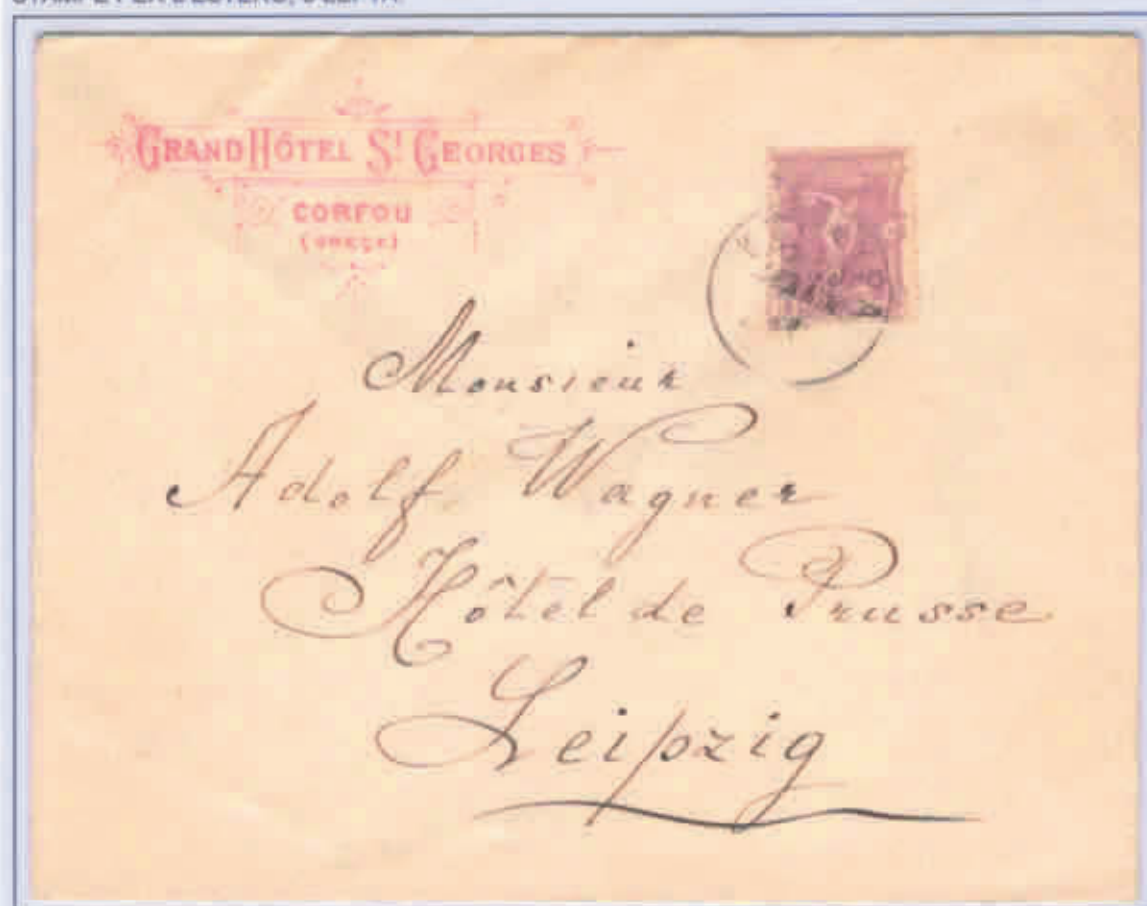 GRAND HÔTEL St GEORGES
CORFOU
(GRÈCE)
Monsieur
Adolf Wagner
Hôtel de Prusse
Leipzig